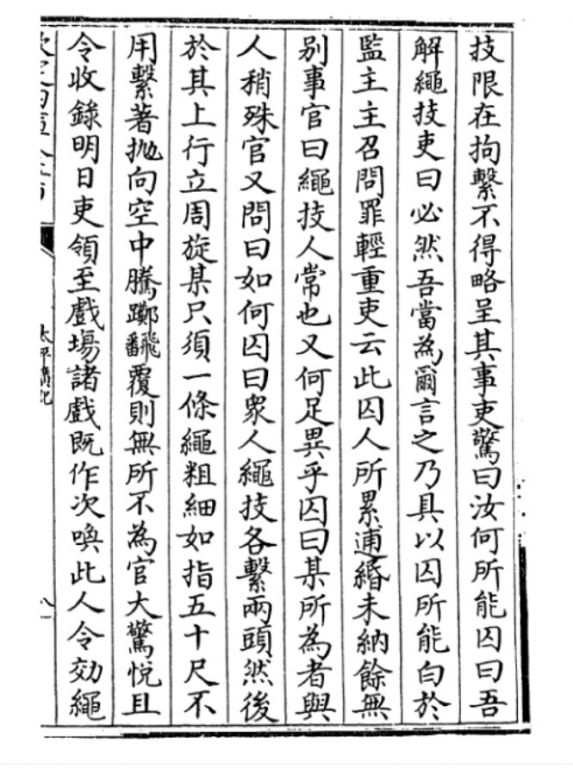 技限在拘繫不得略呈其事吏驚曰汝何所能囚曰吾
解繩技吏曰必然吾當為爾言之乃具以囚所能白於
監主主召問罪輕重吏云此囚人所累逋緡未納餘無
別事官曰繩技人常也又何足異乎囚曰某所為者與
人稍殊官又問曰如何囚曰衆人繩技各繫兩頭然後
於其上行立周旋某只須一條繩粗細如指五十尺不
用繫著抛向空中騰躑飜覆則無所不為官大驚悅且
令收錄明日吏領至戲場諸戲既作次喚此人令効繩
太平廣記
八